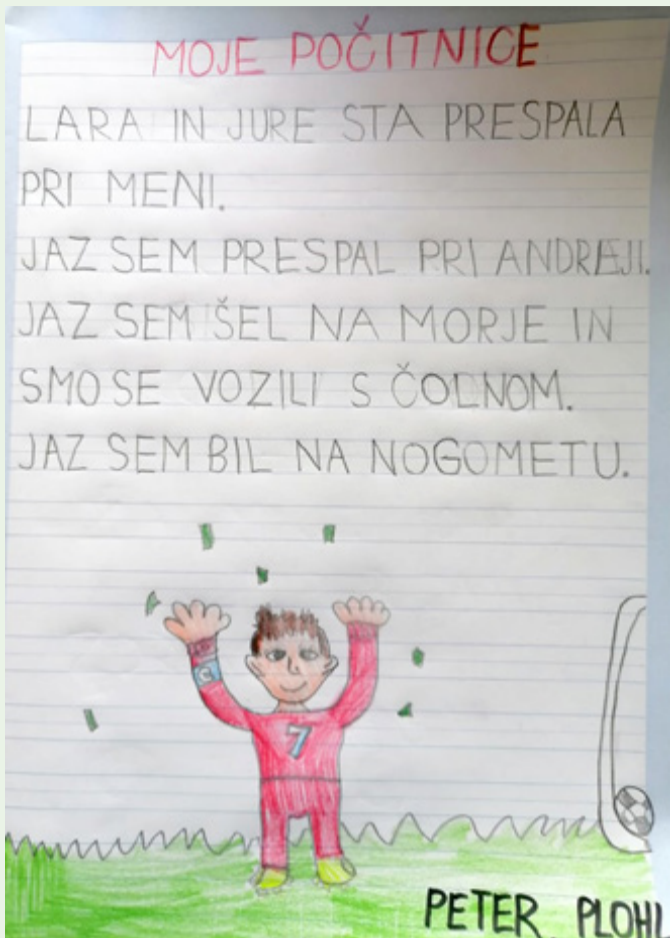 MOJE POČITNICE
LARA IN JURE STA PRESPALA
PRI MENI.
JAZ SEM PRESPAL PRI ANDREJI.
JAZ SEM ŠEL NA MORJE IN
SMO SE VOZILI S ČOLNOM.
JAZ SEM BIL NA NOGOMETU.
C
7
PETER PLOHL